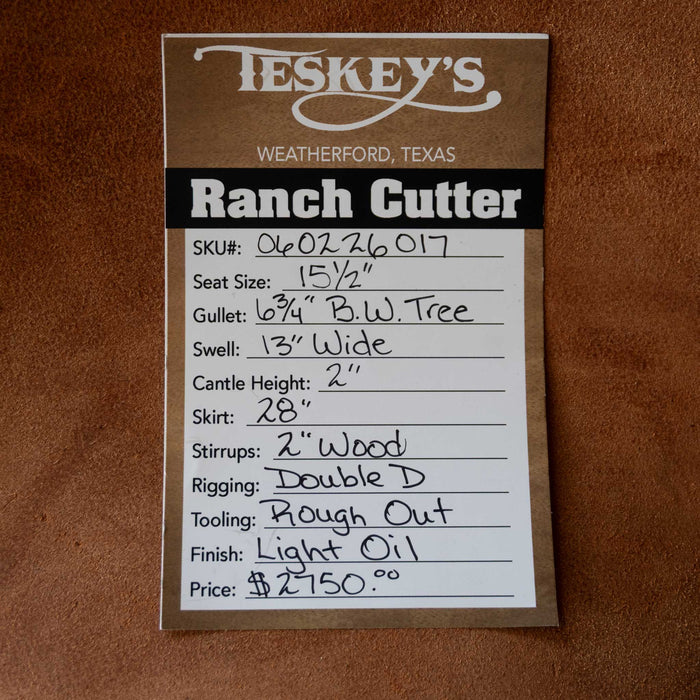 TESKEY'S
WEATHERFORD, TEXAS
Ranch Cutter
SKU#: 060226017
Seat Size: 15½"
Gullet: 6¾" B.W. Tree
Swell: 13" Wide
Cantle Height: 2"
Skirt: 28"
Stirrups: 2" Wood
Rigging: Double D
Tooling: Rough Out
Finish: Light Oil
Price: $2750.⁰⁰